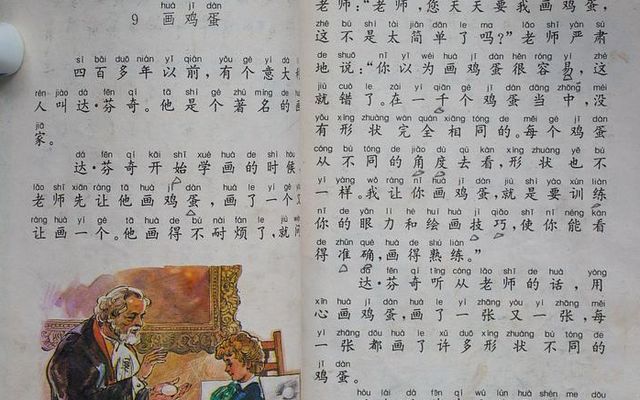 huà jī dàn
9 画鸡蛋
sì bǎi duō nián yǐ qián yǒu gè yì dà
四百多年以前，有个意大
rén jiào dá fēn qí tā shì gè zhù míng de huà
人叫达·芬奇。他是个著名的画
jiā
家。
dá fēn qí kāi shǐ xué huà de shí hou
达·芬奇开始学画的时候
lǎo shī xiān ràng tā huà jī dàn huà le yí gè
老师先让他画鸡蛋，画了一个又
ràng huà yí gè tā huà de bú nài fán le jiù wèn
让画一个。他画得不耐烦了，就问
老师：“老师，您天天要我画鸡蛋，
zhè bú shì tài jiǎn dān le ma lǎo shī yán sù
这不是太简单了吗？”老师严肃
de shuō nǐ yǐ wéi huà jī dàn hěn róng yì zhè
地说：“你以为画鸡蛋很容易，这
jiù cuò le zài yì qiān gè jī dàn dāng zhōng méi
就错了。在一千个鸡蛋当中，没
yǒu xíng zhuàng wán quán xiāng tóng de měi gè jī dàn
有形状完全相同的。每个鸡蛋
cóng bù tóng de jiǎo dù qù kàn xíng zhuàng yě bù
从不同的角度去看，形状也不
yí yàng wǒ ràng nǐ huà jī dàn jiù shì yào xùn liàn
一样。我让你画鸡蛋，就是要训练
nǐ de yǎn lì hé huì huà jì qiǎo shǐ nǐ néng kàn
你的眼力和绘画技巧，使你能看
de zhǔn què huà de shú liàn
得准确，画得熟练。”
dá fēn qí tīng cóng lǎo shī de huà yòng
达·芬奇听从老师的话，用
xīn huà jī dàn huà le yì zhāng yòu yì zhāng měi
心画鸡蛋，画了一张又一张，每
yì zhāng dōu huà le xǔ duō xíng zhuàng bù tóng de
一张都画了许多形状不同的
jī dàn
鸡蛋。
hòu lái dá fēn qí wú lùn huà shén me dōu